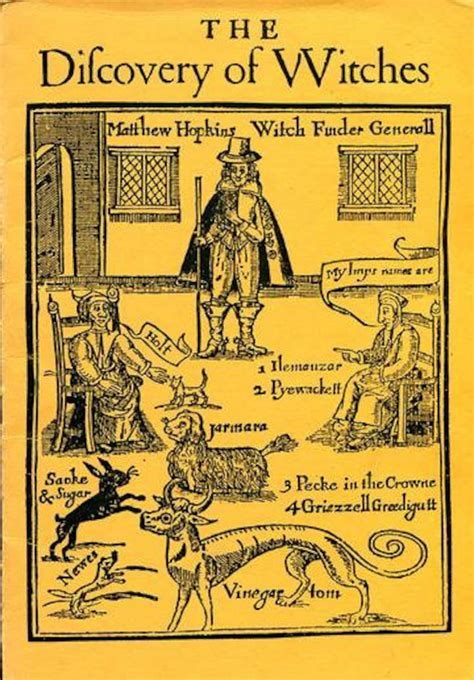 THE
Diſcovery of VVitches
Matthew Hopkins Witch Finder Generall
My Imps names are
Holt
1 Ilemauzar
2 Pyewackett
Jarmara
3 Pecke in the Crowne
4 Griezzell Greedigutt
Sacke
& Sugar
Newes
Vinegar tom